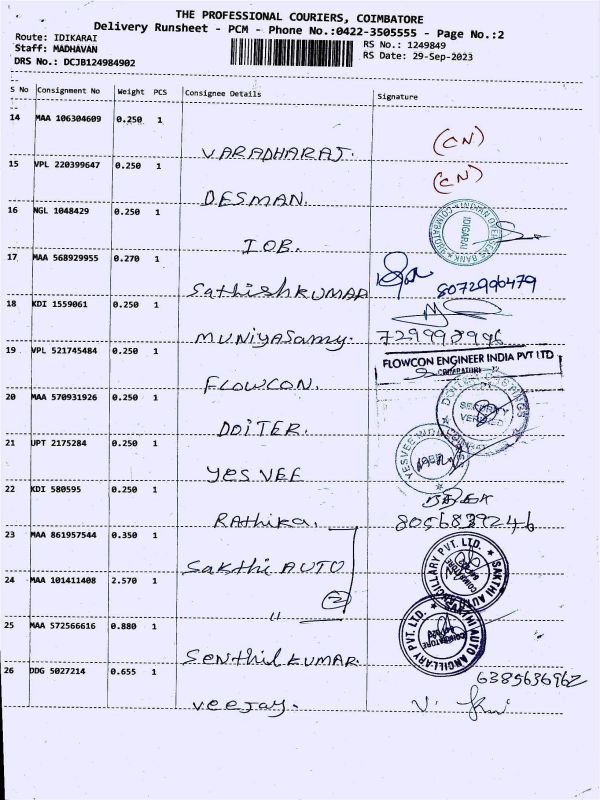 THE PROFESSIONAL COURIERS, COIMBATORE
Delivery Runsheet - PCM - Phone No.:0422-3505555 - Page No.:2
Route: IDIKARAI
RS No.: 1249849
Staff: MADHAVAN
RS Date: 29-Sep-2023
DRS No.: DCJB124984902
S No Consignment No Weight PCS Consignee Details Signature
14 MAA 106304609 0.250 1
VARADHARAJ. (CN)
15 VPL 220399647 0.250 1
DESMAN. (CN)
16 NGL 1048429 0.250 1
IOB. INDIAN OVERSEAS BANK COIMBATORE IDIGARAI
17 MAA 568929955 0.270 1
Sathish KUMAR 8072990479
18 KDI 1559061 0.250 1
MUNIYASamy. 7299998996
19 VPL 521745484 0.250 1
FLOWCON ENGINEER INDIA PVT LTD
COIMBATORE
FLOWCON.
20 MAA 570931926 0.250 1
DOITER. SECURITY VERIFIED
21 UPT 2175284 0.250 1
YES VEE YESVEE
22 KDI 580595 0.250 1
RAthika. 8056839246
23 MAA 861957544 0.350 1
Sakthi AUTO SAKTHI AUTO ANCILLARY PVT. LTD.
24 MAA 101411408 2.570 1
" (2)
25 MAA 572566616 0.880 1
SAKTHI AUTO ANCILLARY PVT. LTD.
Senthil KUMAR.
26 DDG 5027214 0.655 1
6385636962
Veejay.